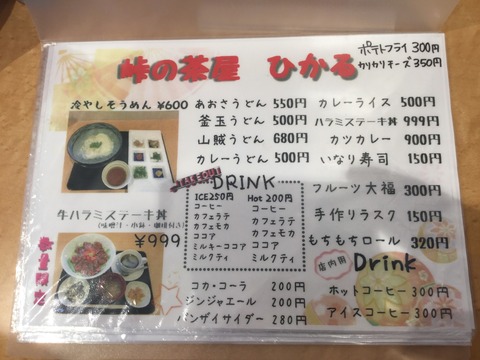 ポテトフライ 300円
カリカリチーズ 350円
峠の茶屋 ひかる
冷やしそうめん ¥600
あおさうどん 550円
釜玉うどん 500円
山賊うどん 680円
カレーうどん 500円
カレーライス 500円
ハラミステーキ丼 999円
カツカレー 900円
いなり寿司 150円
フルーツ大福 300円
手作りラスク 150円
もちもちロール 320円
牛ハラミステーキ丼
¥999
TAKEOUT
DRINK
ICE250円
コーヒー
カフェラテ
カフェモカ
ココア
ミルキーココア
ミルクティ
Hot 200円
コーヒー
カフェラテ
カフェモカ
ココア
ミルクティ
コカ・コーラ 200円
ジンジャエール 200円
バンザイサイダー 280円
店内用
Drink
ホットコーヒー 300円
アイスコーヒー 300円